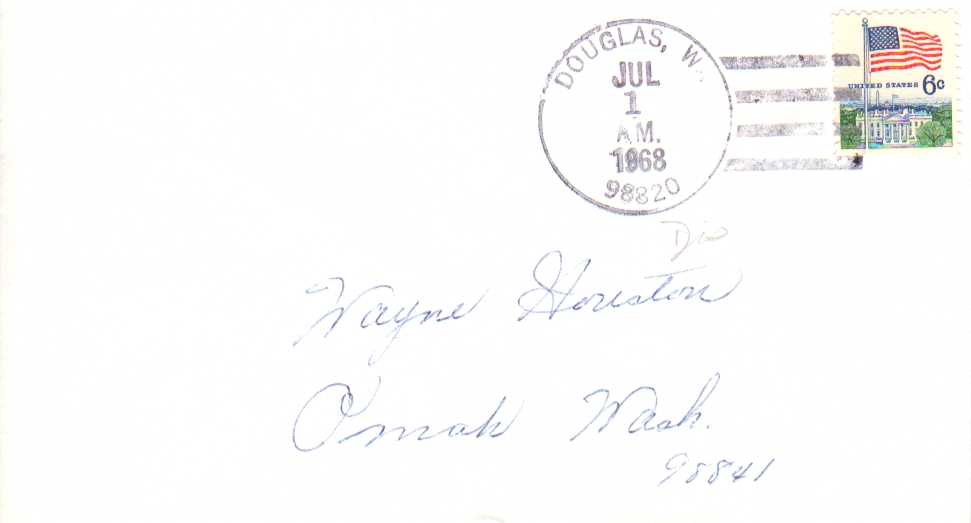 DOUGLAS, W
JUL
1
A.M.
1968
98820
UNITED STATES 6c
Wayne Houston
Omak Wash.
98841